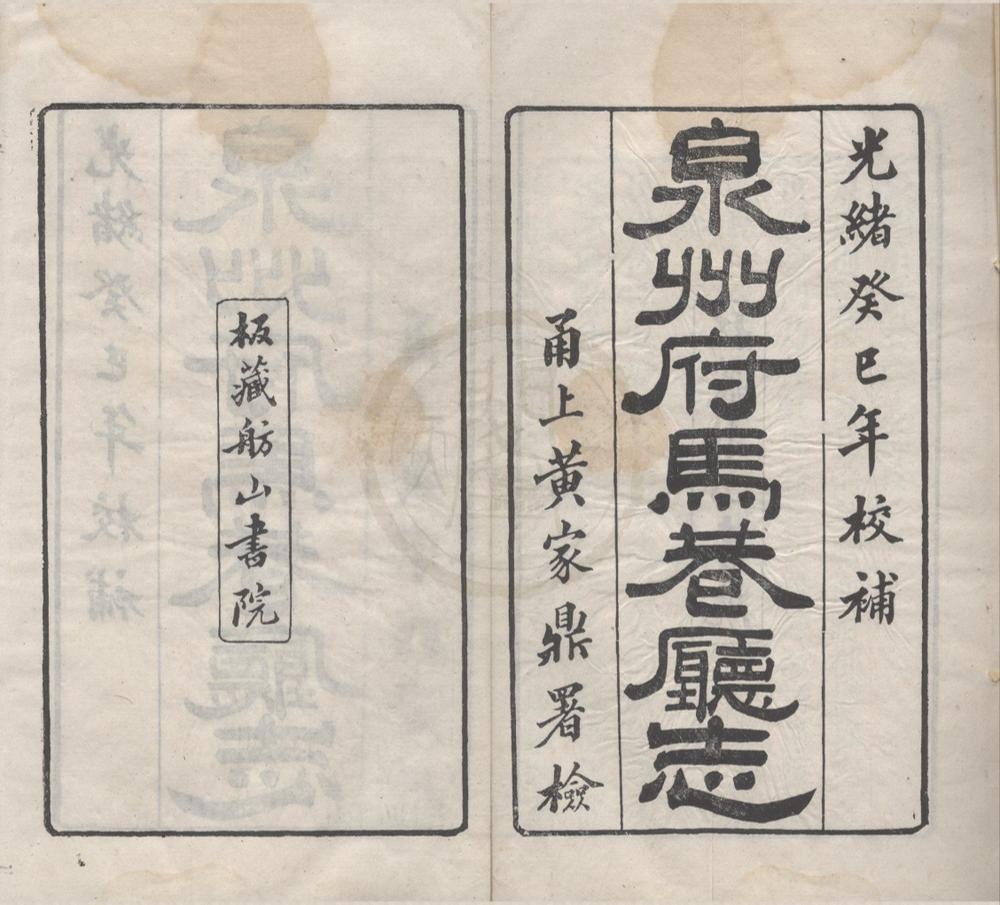 光緒癸巳年校補
泉州府馬巷廳志
甬上黃家鼎署檢
板藏舫山書院